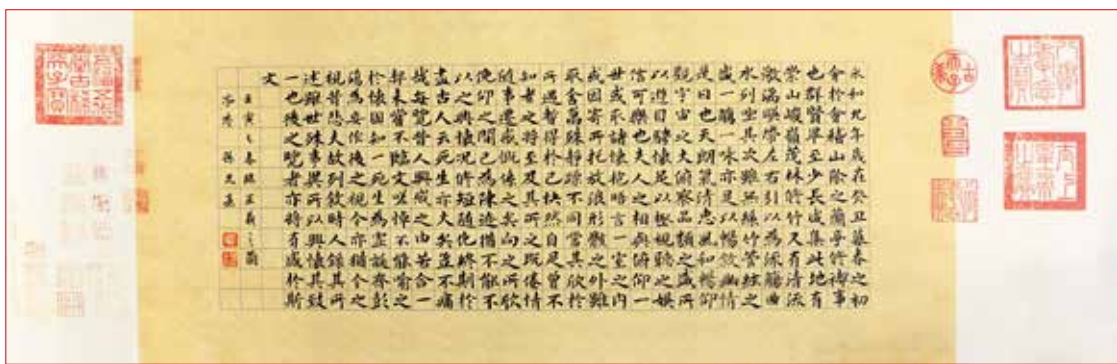 永和九年歲在癸丑暮春之初
會於會稽山陰之蘭亭修禊事
也群賢畢至少長咸集此地有
崇山峻嶺茂林修竹又有清流
激湍映帶左右引以為流觴曲
水列坐其次雖無絲竹管絃之
盛一觴一詠亦足以暢敘幽情
是日也天朗氣清惠風和暢仰
觀宇宙之大俯察品類之盛所
以遊目騁懷足以極視聽之娛
信可樂也夫人之相與俯仰一
世或取諸懷抱晤言一室之內
或因寄所托放浪形骸之外雖
取舍萬殊靜躁不同當其欣於
所遇暫得於己快然自足曾不
知老之將至及其所之既倦情
隨事遷感慨係之矣向之所欣
俛仰之間已為陳迹猶不能不
以之興懷況修短隨化終期於
盡古人云死生亦大矣豈不痛
哉每覽昔人興感之由若合一
契未嘗不臨文嗟悼不能喻之
於懷固知一死生為虛誕齊彭
殤為妄作後之視今亦猶今之
視昔悲夫故列敘時人錄其所
述雖世殊事異所以興懷其致
一也後之覽者亦將有感於斯
文
壬寅之春臨王羲之蘭
亭序